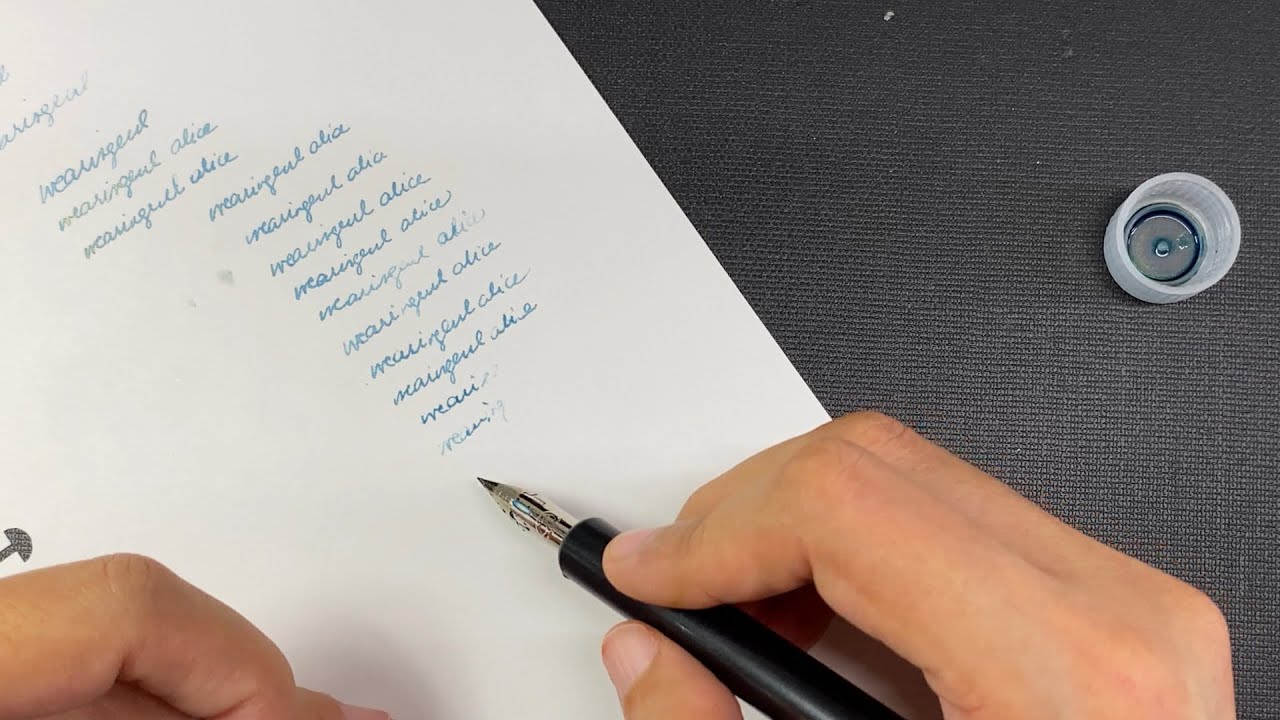 aringeul
wearingeul
wearingeul alice
wearingeul alice
wearingeul alice
wearingeul alice
wearingeul alice
wearingeul alice
wearingeul alice
wearingeul alice
wearingeul alice
wearingeul alice
weari
wearing